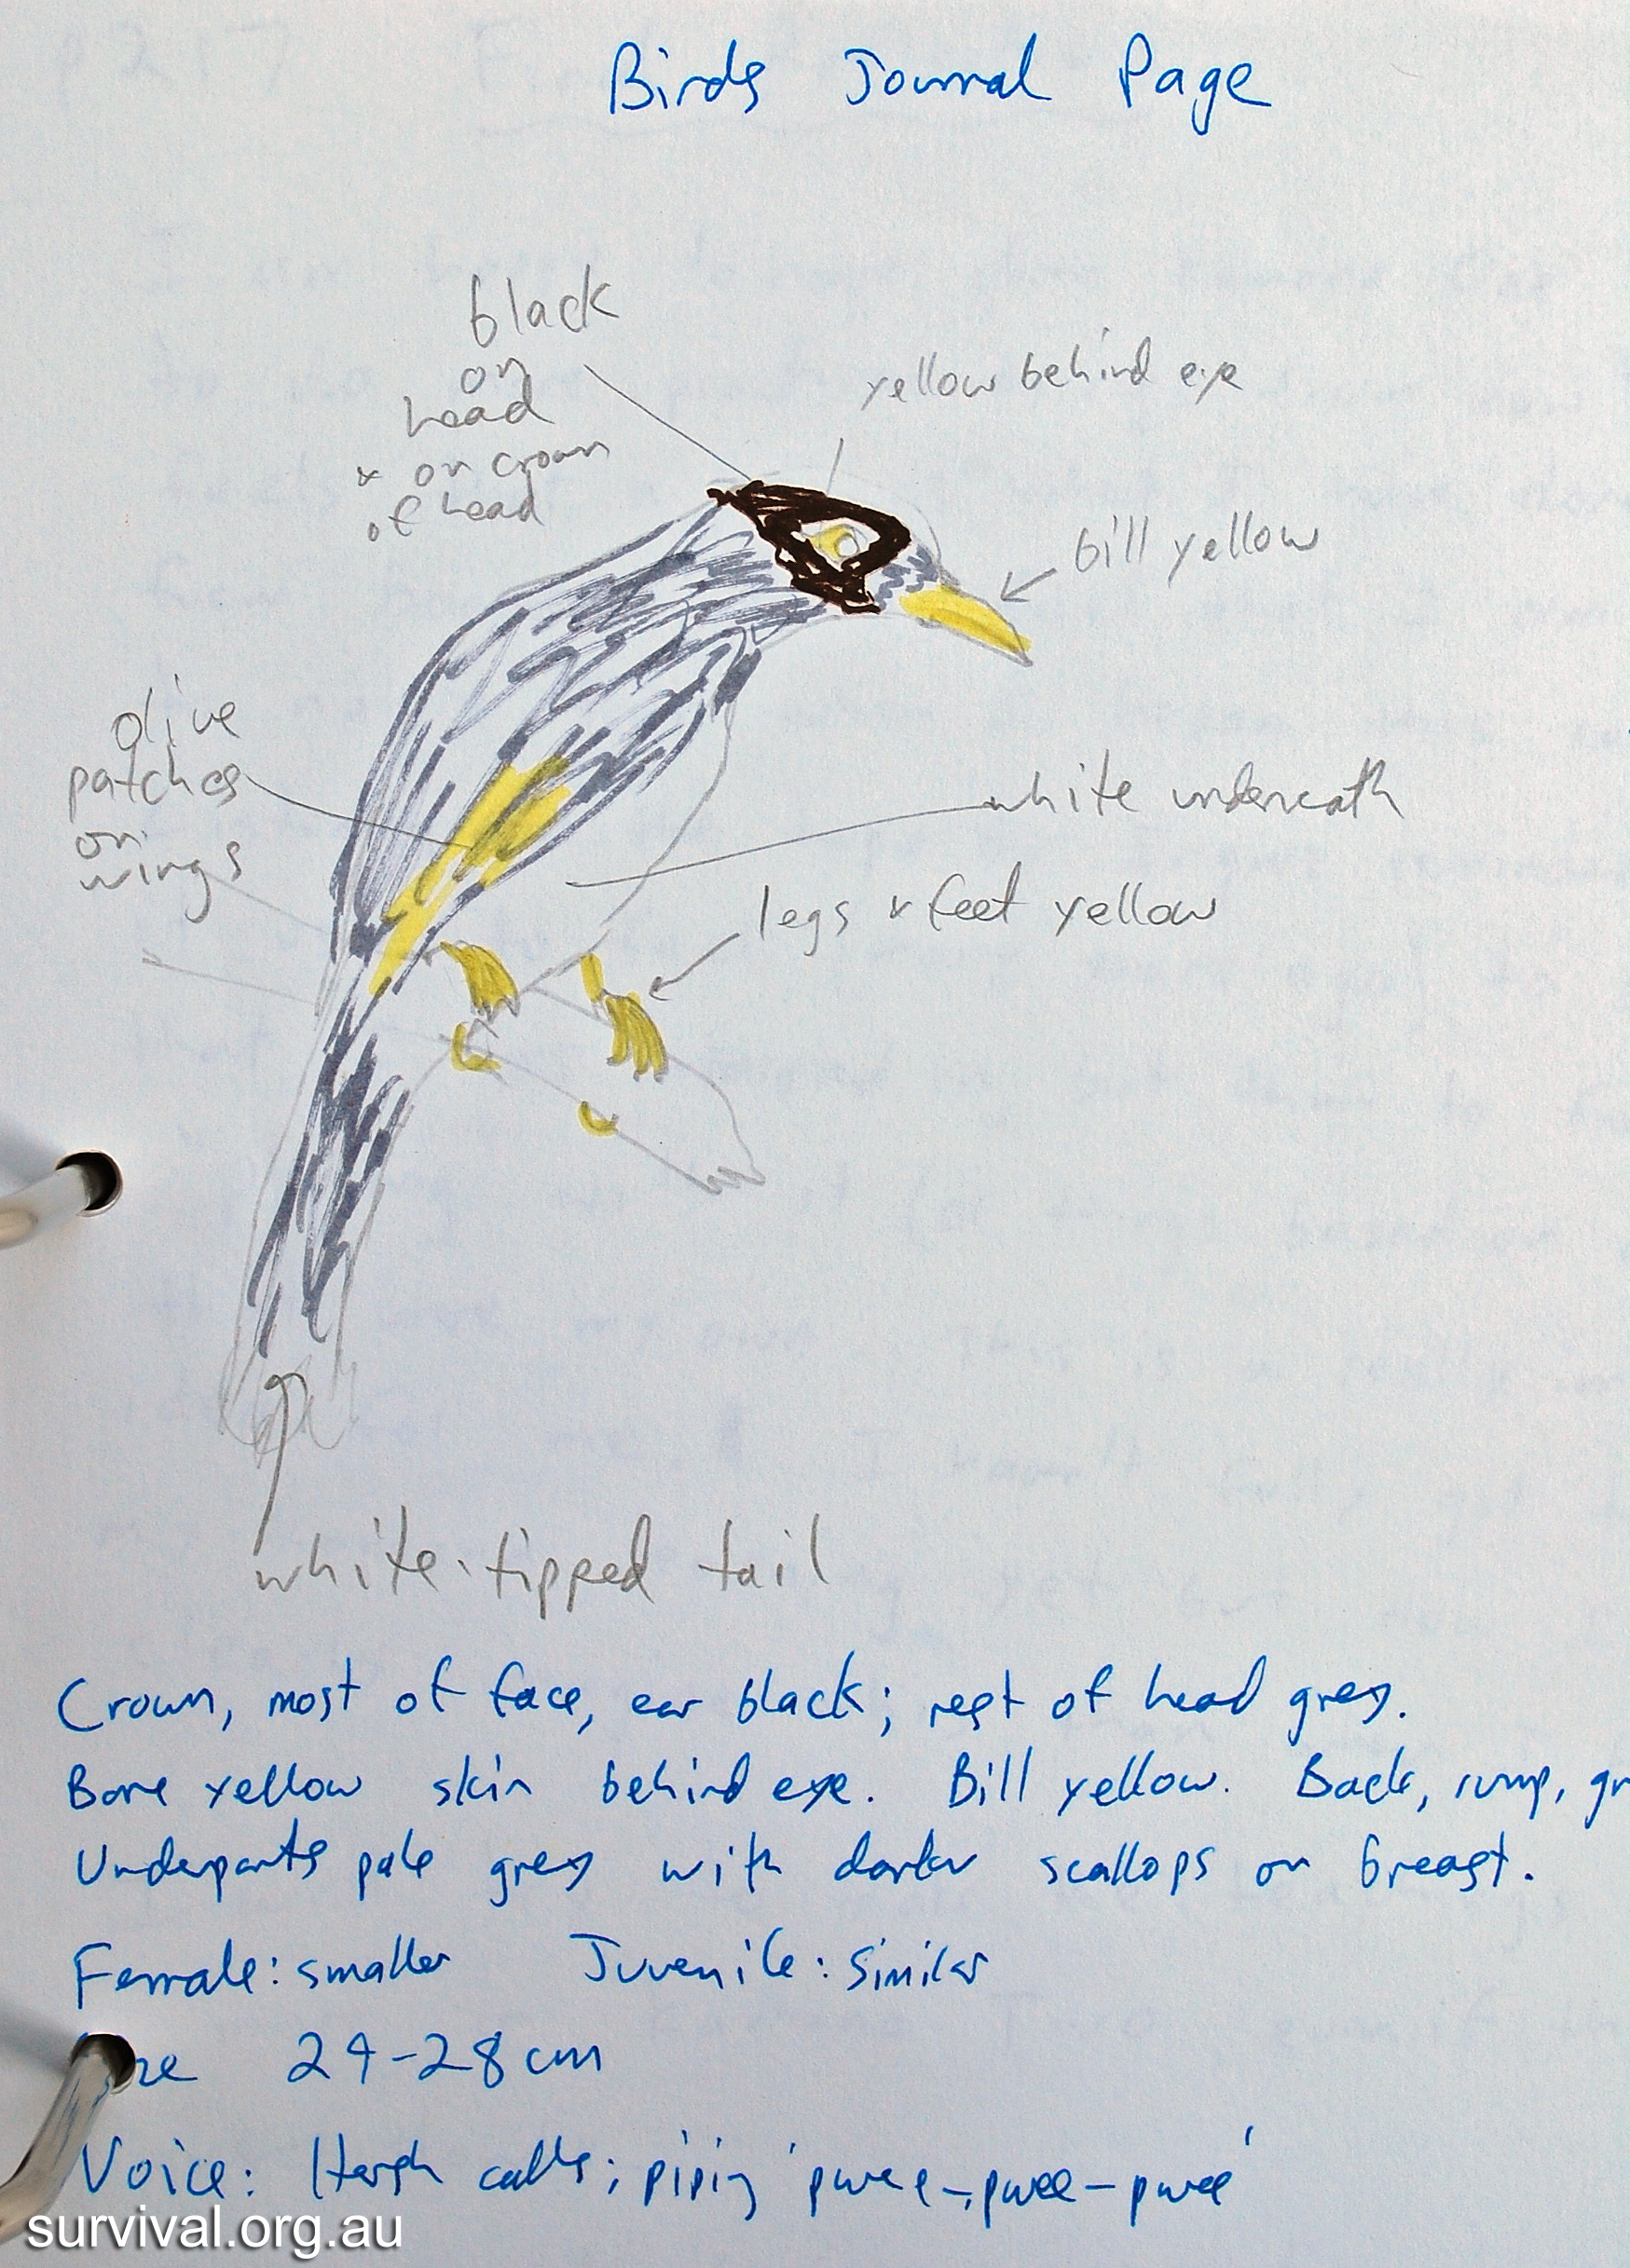 Birds Journal Page
black
on
head
+ on crown
of head
yellow behind eye
bill yellow
olive
patches
on
wings
white underneath
legs + feet yellow
white-tipped tail
Crown, most of face, ear black; rest of head grey.
Bare yellow skin behind eye. Bill yellow. Back, rump, gr
Underparts pale grey with darker scallops on breast.
Female: smaller Juvenile: similar
24-28 cm
Voice: Harsh calls; piping 'pwee-pwee-pwee'
survival.org.au